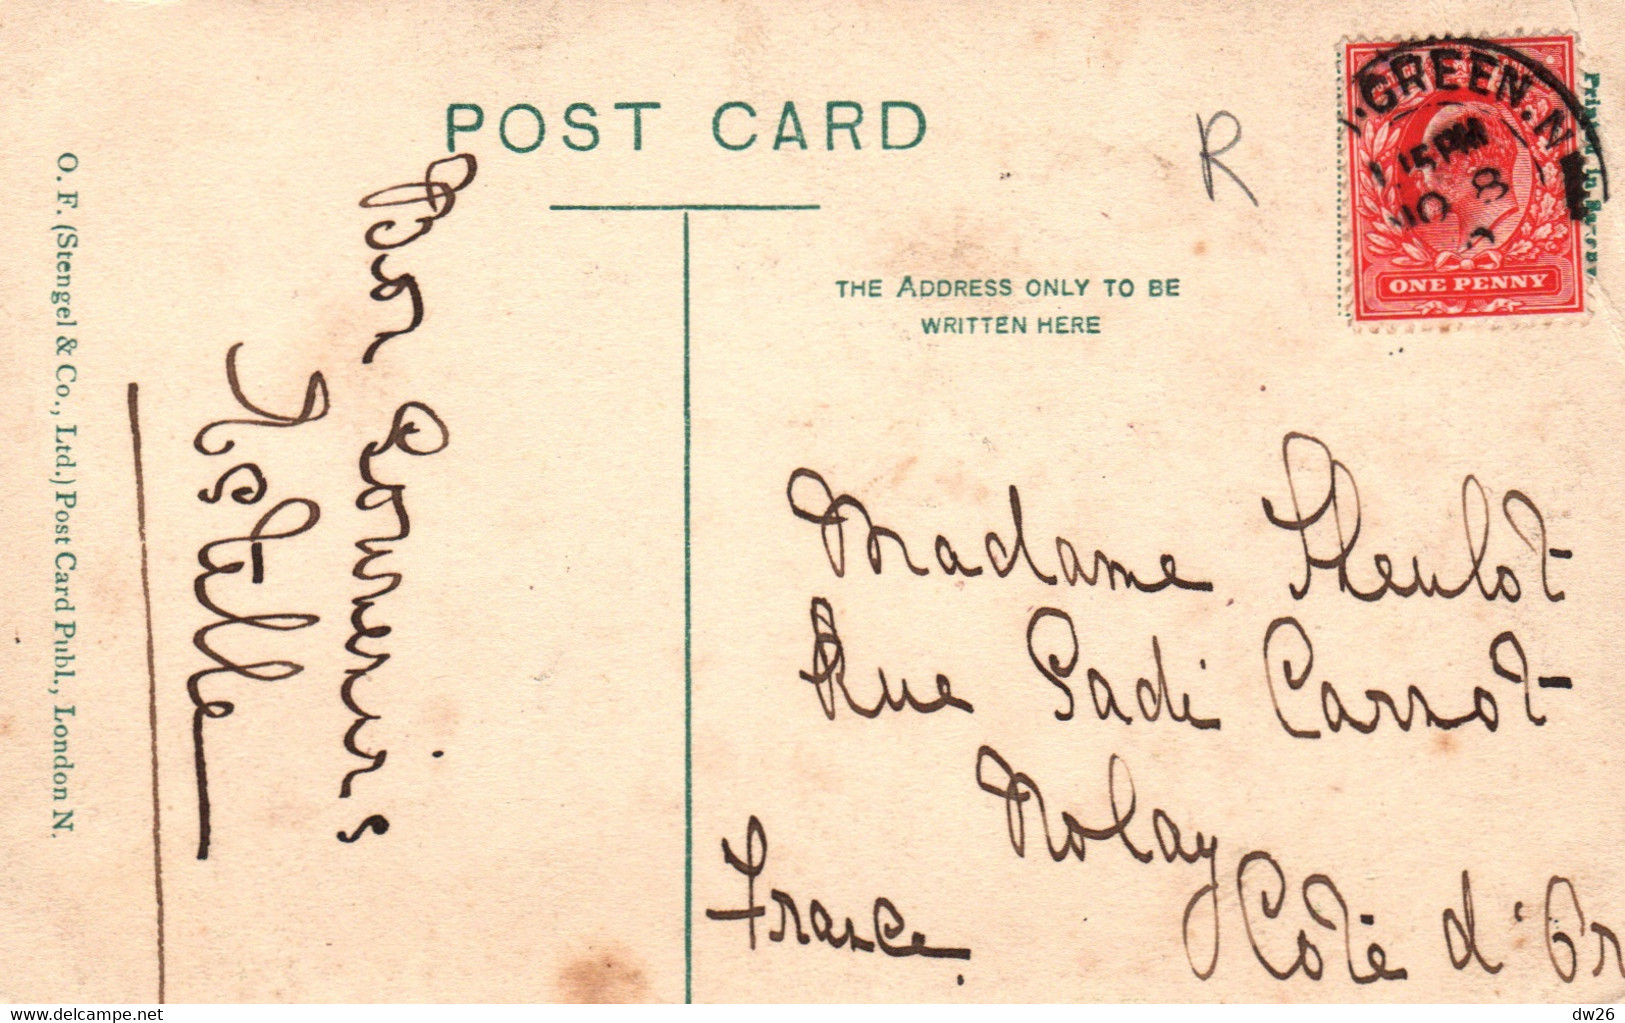 POST CARD
R
.GREEN.N
.15 PM
NO 8
ONE PENNY
Printed in Saxony.
THE ADDRESS ONLY TO BE
WRITTEN HERE
O. F. (Stengel & Co., Ltd.) Post Card Publ., London N.
Bon Souvenirs
Estelle
Madame Theulot
Rue Sadi Carnot
Nolay
Côte d'Or
France.
delcampe.net
dw26